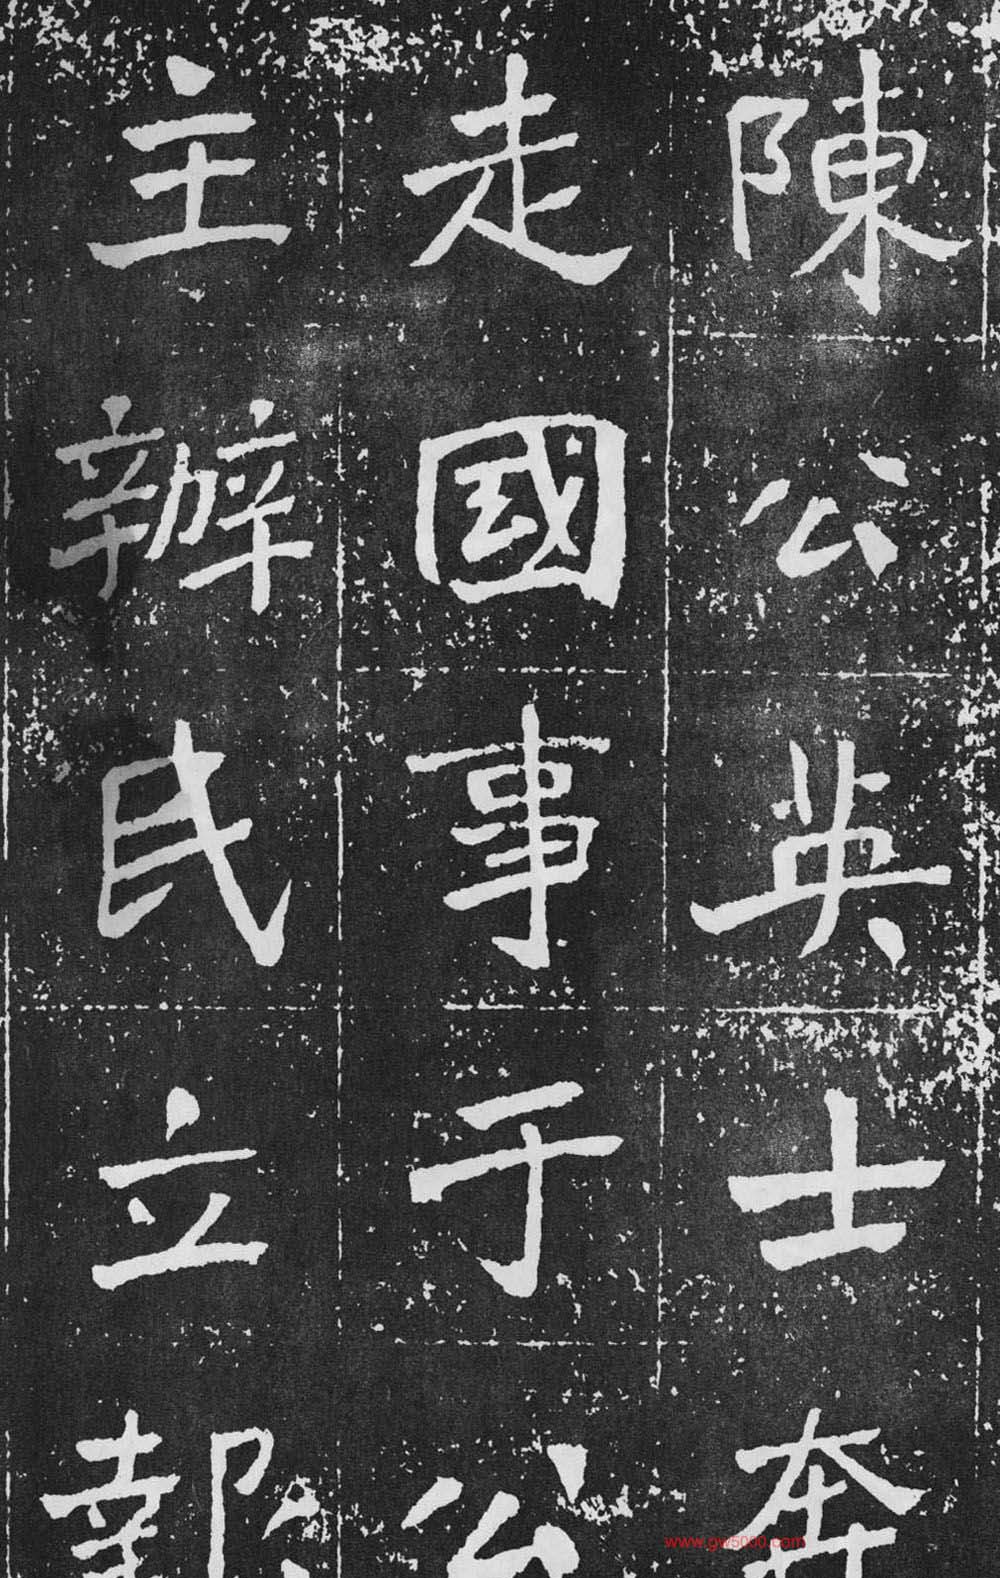 陳公英士奔
走國事于公
主辦民立報
www.gw5000.com